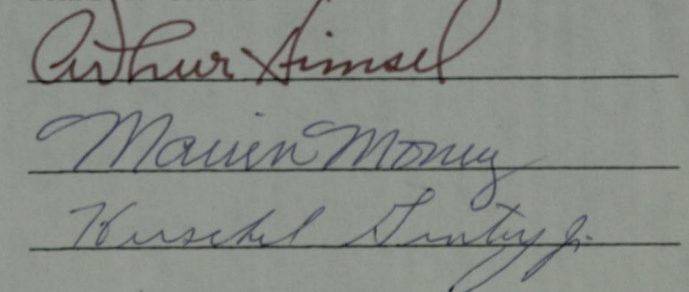 Arthur Himsel
Marion Money
Herschel Gentry Jr.